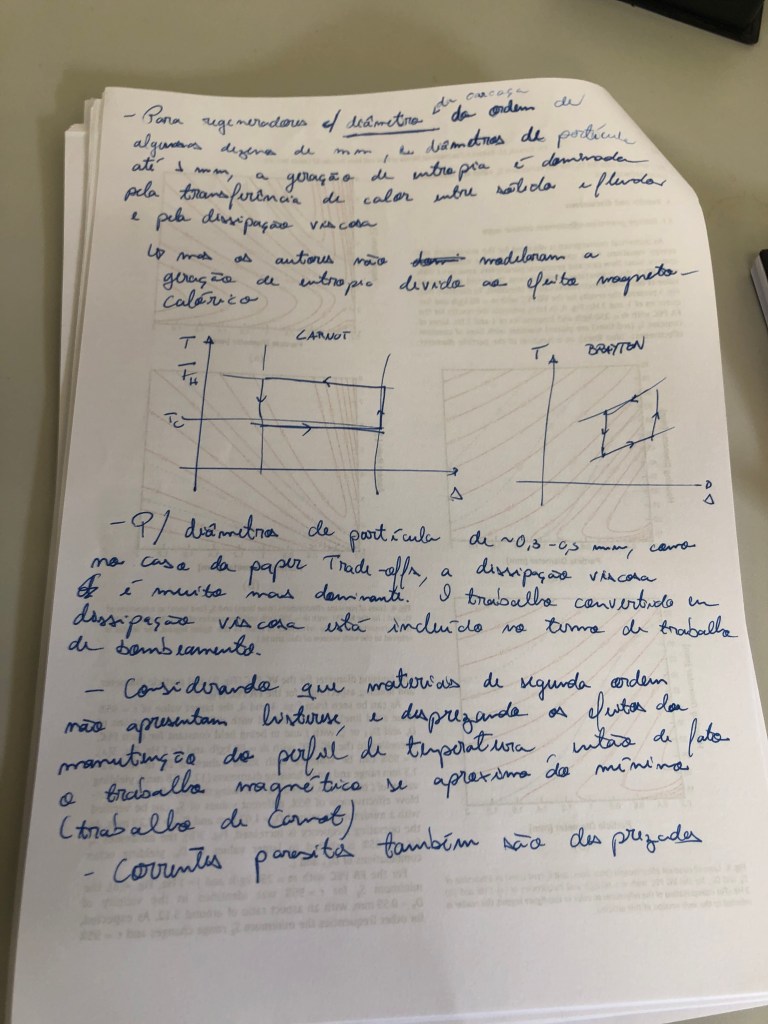 - Para regeneradores c/ diâmetro da ordem de
de carcaça
algumas dezenas de mm, e diâmetros de partícula
até 1 mm, a geração de entropia é dominada
pela transferência de calor entre sólido e fluido
e pela dissipação viscosa
↳ mas os autores não modelaram a
geração de entropia devido ao efeito magneto-
calórico
CARNOT
T
T_H
T_C
s
BRAYTON
T
s
- P/ diâmetros de partícula de ~0,3-0,5 mm, como
no caso do paper Trade-offs, a dissipação viscosa
é muito mais dominante. O trabalho convertido em
dissipação viscosa está incluído no termo de trabalho
de bombeamento.
- Considerando que materiais de segunda ordem
não apresentam histerese, e desprezando os efeitos da
manutenção do perfil de temperatura, então de fato
o trabalho magnético se aproxima do mínimo
(trabalho de Carnot)
- Correntes parasitas também são desprezadas